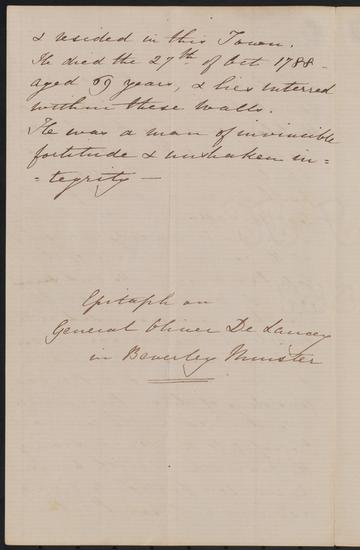 & resided in this Town.
He died the 27th of Oct 1788 -
aged 69 years, & lies interred
within these walls.
He was a man of invincible
fortitude & unshaken in=
=tegrity —
Epitaph on
General Oliver De Lancey
in Beverley Minster